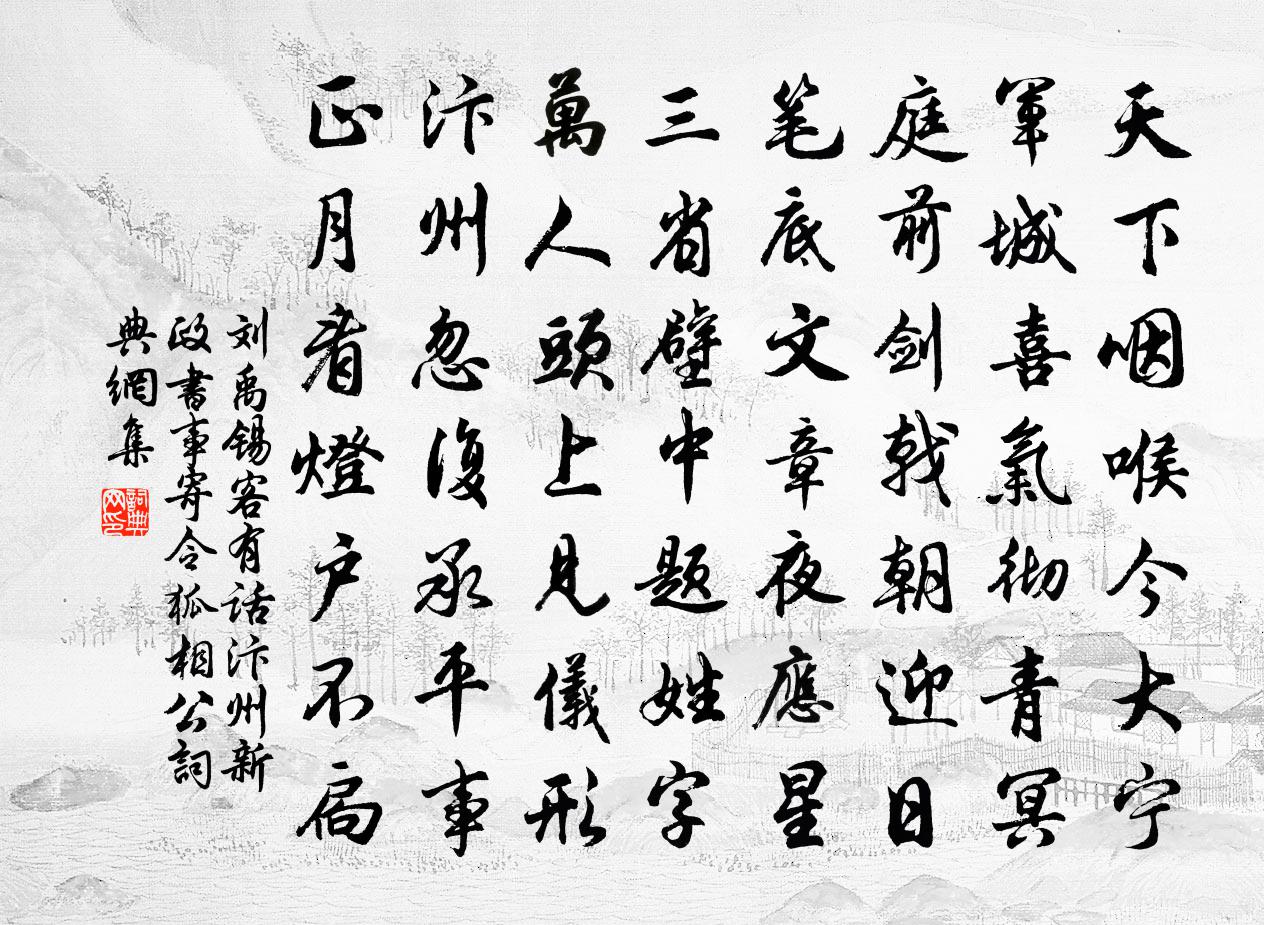 天下咽喉今大宁
軍城喜氣彻青冥
庭前剑戟朝迎日
笔底文章夜應星
三省壁中题姓字
萬人頭上見儀形
汴州忽復承平事
正月看燈户不扃
刘禹锡客有话汴州新
政書事寄令狐相公詞
典網集
詞典网印